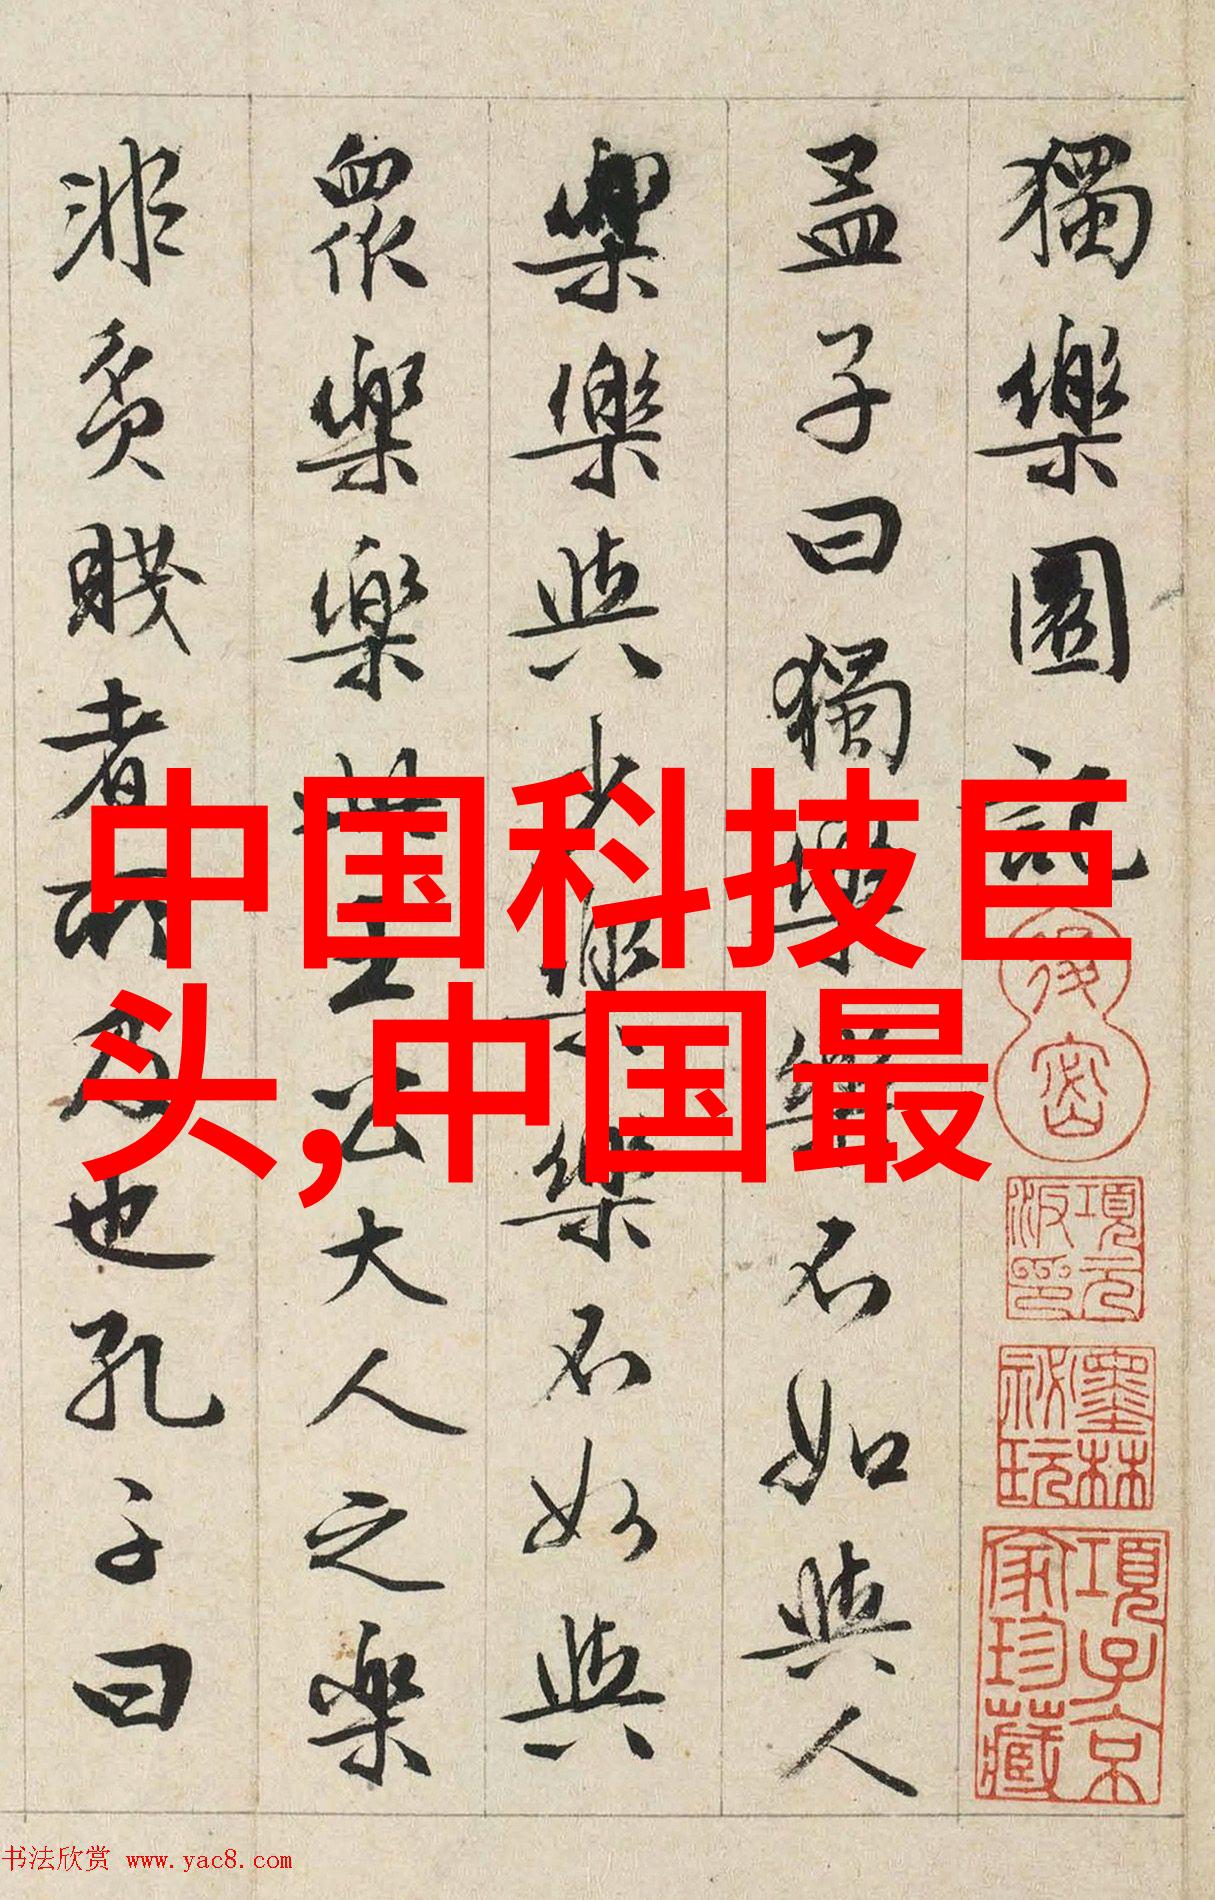 獨樂園記
孟子曰獨樂樂不如與人
樂樂與少樂樂不如與
衆樂樂此王公大人之樂
非貧賤者所及也孔子曰
中国科技巨
头,中国最
項元汴印
墨林祕玩
項子京家珍藏
书法欣赏 www.yac8.com